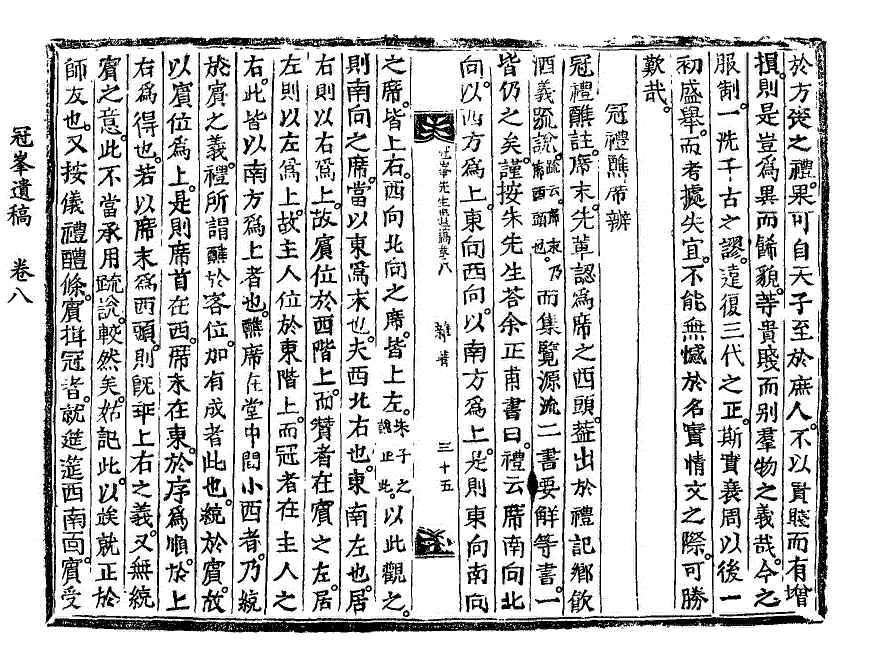 於方喪之禮果可自天子至於庶人不以貴賤而有增
損則是豈爲異而餙貌等貴賤而别羣物之義哉今之
服制一洗千古之謬遠復三代之正斯實衰周以後一
初盛舉而考據失宜不能無憾於名實情文之際可勝
歎哉
冠禮醮席辨
冠禮醮註席末先軰認爲席之西頭葢出於禮記鄕飮
酒義䟽說䟽云席末乃席西頭也而集覽源流二書要解等書一
皆仍之矣謹按朱先生答余正甫書曰禮云席南向北
向以西方爲上東向西向以南方爲上是則東向南向
冠峯先生遺稿卷八 雜著 三十五
之席皆上右西向北向之席皆上左朱子之說止此以此觀之
則南向之席當以東爲末也夫西北右也東南左也居
右則以右爲上故賓位於西階上而贊者在賓之左居
左則以左爲上故主人位於東階上而冠者在主人之
右此皆以南方爲上者也醮席在堂中間小西者乃統
於賓之義禮所謂醮於客位加有成者此也統於賓故
以賓位爲上是則席首在西席末在東於序爲順於上
右爲得也若以席末爲西頭則旣乖上右之義又無統
賓之意此不當承用䟽說較然矣姑記此以俟就正於
師友也又按儀禮醴條賓揖冠者就筵筵西南面賓受
冠峯遺稿 卷八